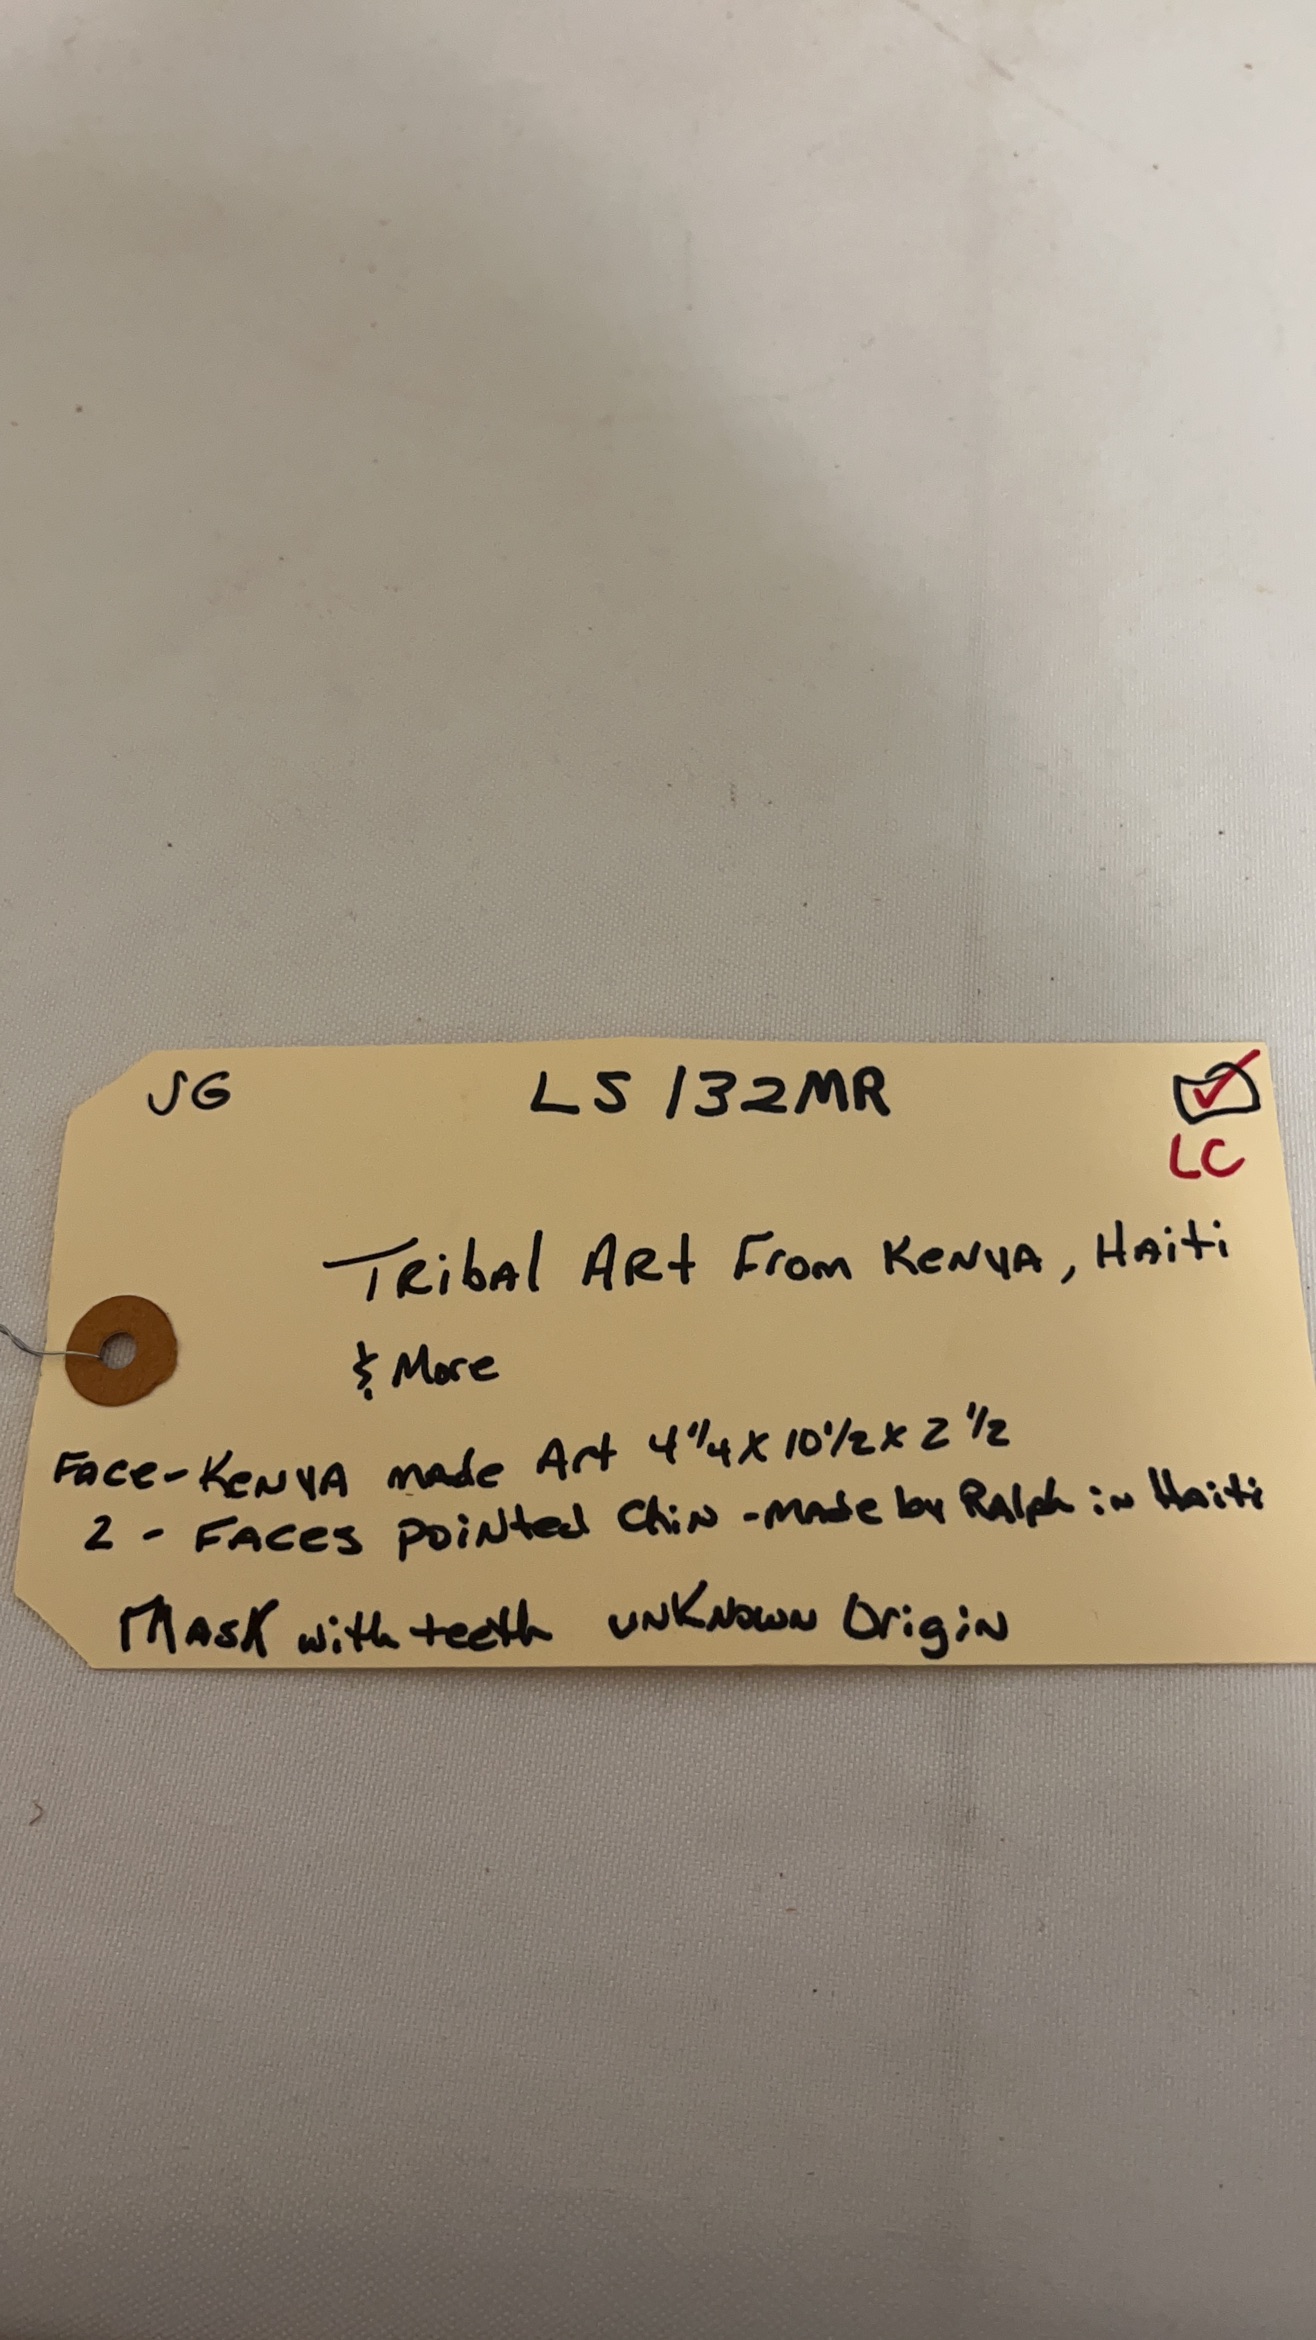 JG LS 132MR
LC
Tribal Art From Kenya, Haiti
& More
Face-Kenya made Art 4 1/4 x 10 1/2 x 2 1/2
2 - Faces pointed Chin - made by Ralph in Haiti
Mask with teeth unknown Origin